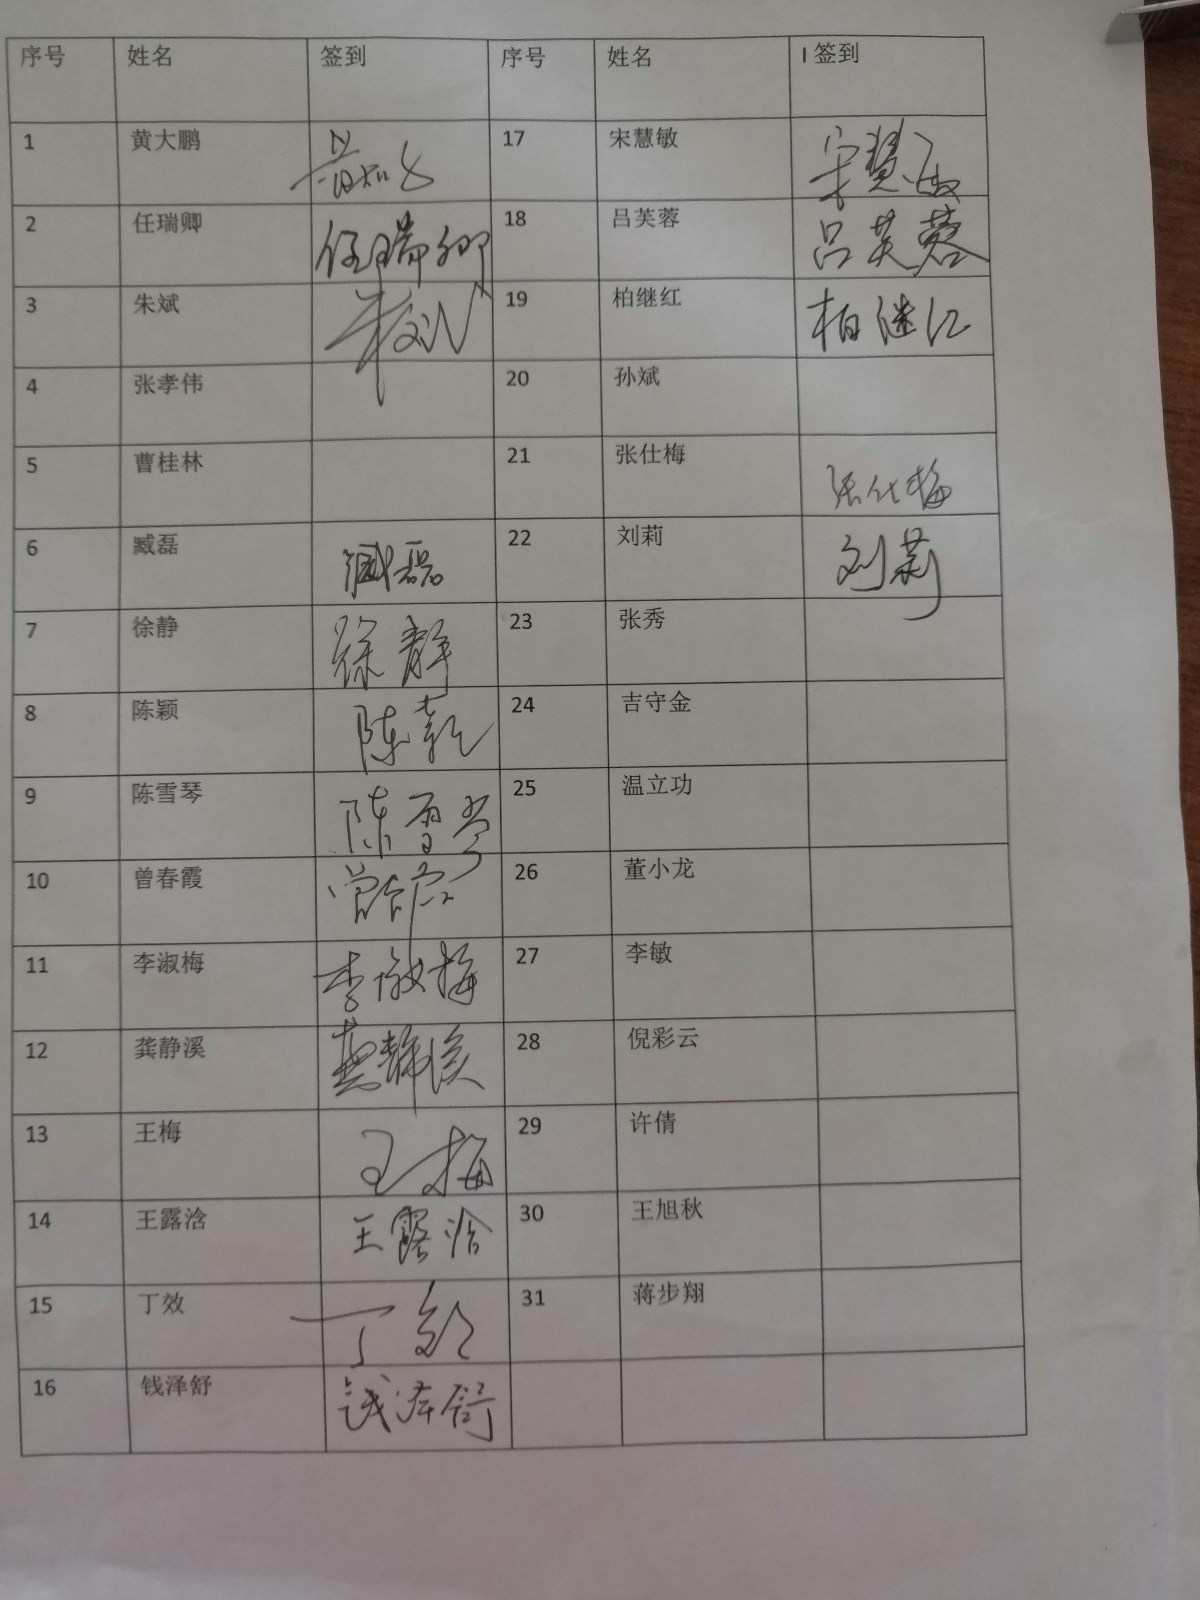 序号 姓名 签到 序号 姓名 I 签到
1 黄大鹏 17 宋慧敏 宋慧敏
2 任瑞卿 任瑞卿 18 吕芙蓉 吕芙蓉
3 朱斌 朱斌 19 柏继红 柏继红
4 张孝伟 20 孙斌
5 曹桂林 21 张仕梅 张仕梅
6 臧磊 臧磊 22 刘莉 刘莉
7 徐静 徐静 23 张秀
8 陈颖 陈颖 24 吉守金
9 陈雪琴 陈雪琴 25 温立功
10 曾春霞 曾春霞 26 董小龙
11 李淑梅 李淑梅 27 李敏
12 龚静溪 龚静溪 28 倪彩云
13 王梅 王梅 29 许倩
14 王露浛 王露浛 30 王旭秋
15 丁效 丁效 31 蒋步翔
16 钱泽舒 钱泽舒